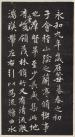 永和九年歲在癸丑暮春之初會
于會稽山陰之蘭亭脩稧事
也群賢畢至少長咸集此地
有峻領茂林脩竹又有清流激
湍暎帶左右引以為流觴曲水